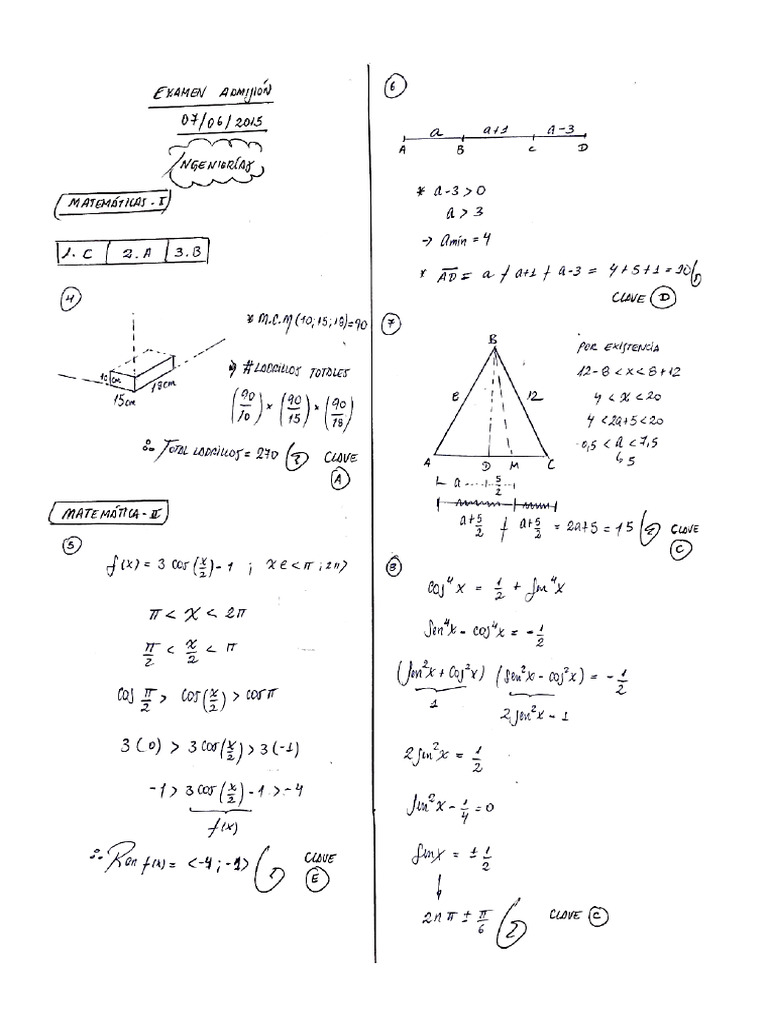 EXAMEN ADMISIÓN
07/06/2015
INGENIERÍAS
MATEMÁTICAS-I
1. C 2. A 3. B
4
10 cm
15cm
18cm
* M.C.M (10; 15; 18) = 90
# LADRILLOS TOTALES
(90/10) * (90/15) * (90/18)
∴ TOTAL LADRILLOS = 270
CLAVE
A
MATEMÁTICA-II
5
f(x) = 3 cos(x/2) - 1 ; x ∈ <π ; 2π>
π < x < 2π
π/2 < x/2 < π
cos π/2 > cos(x/2) > cos π
3(0) > 3 cos(x/2) > 3(-1)
-1 > 3 cos(x/2) - 1 > -4
f(x)
∴ Ran f(x) = <-4 ; -1>
CLAVE
E
6
a a+1 a-3
A B C D
* a-3 > 0
a > 3
→ amin = 4
* AD = a + a+1 + a-3 = 4+5+1 = 10
CLAVE D
7
B
8 12
A D M C
a 5/2
a+5/2 + a+5/2 = 2a+5 = 15
CLAVE
C
POR EXISTENCIA
12-8 < x < 8+12
4 < x < 20
4 < 2a+5 < 20
-0,5 < a < 7,5
↳ 5
8
cos⁴x = 1/2 + sen⁴x
sen⁴x - cos⁴x = -1/2
(sen²x + cos²x) (sen²x - cos²x) = -1/2
1 2sen²x - 1
2sen²x = 1/2
sen²x - 1/4 = 0
senx = ± 1/2
2nπ ± π/6
CLAVE C